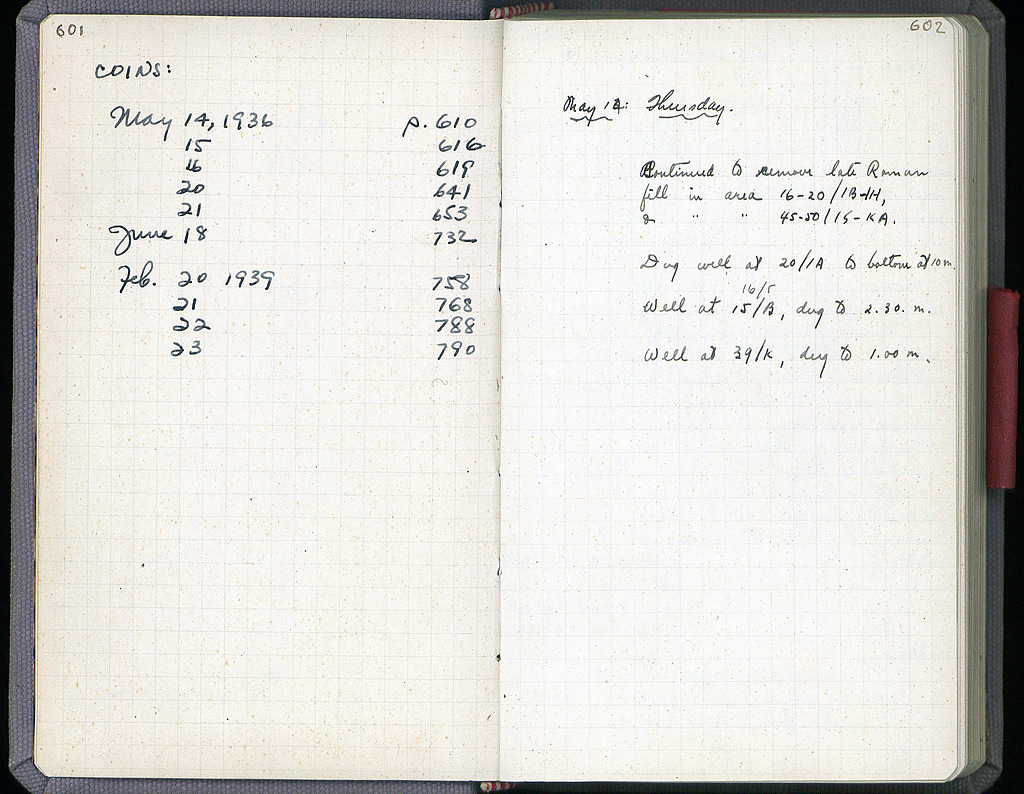 601
COINS:
May 14, 1936 p. 610
15 616
16 619
20 641
21 653
June 18 732
Feb. 20 1939 758
21 768
22 788
23 790
602
May 14: Thursday.
Continued to remove late Roman
fill in area 16-20/IB-IH,
& " " 45-50/IS-KA.
Dug well at 20/IA to bottom at 10 m.
16/Γ
Well at 15/B, dug to 2.30. m.
Well at 39/K, dug to 1.00 m.